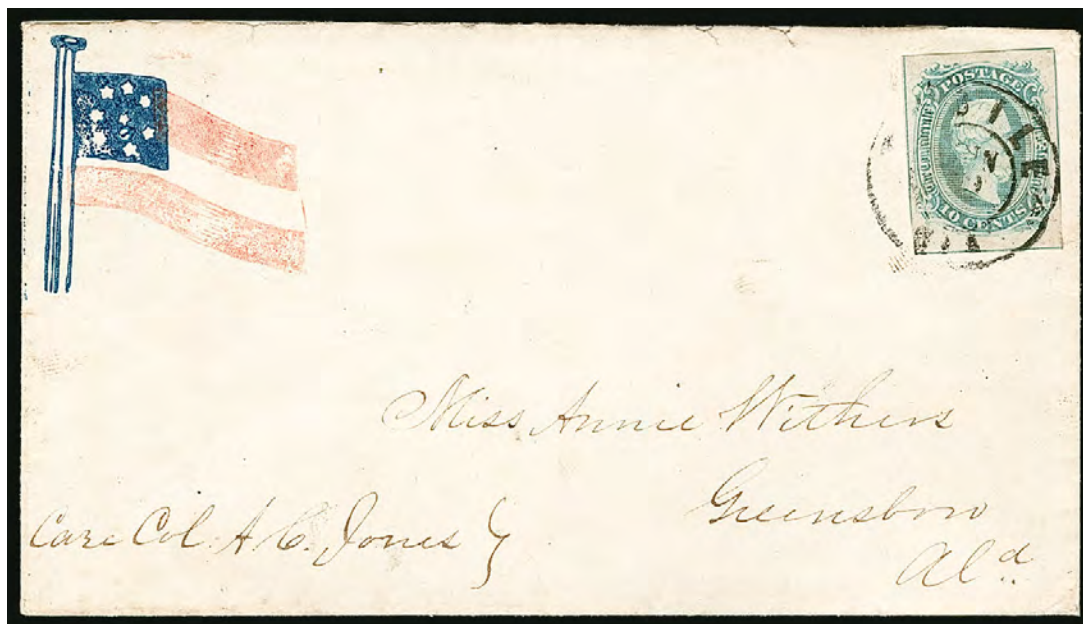 POSTAGE
10 CENTS
Miss Annie Withers
Greensboro
Care Col. A. C. Jones